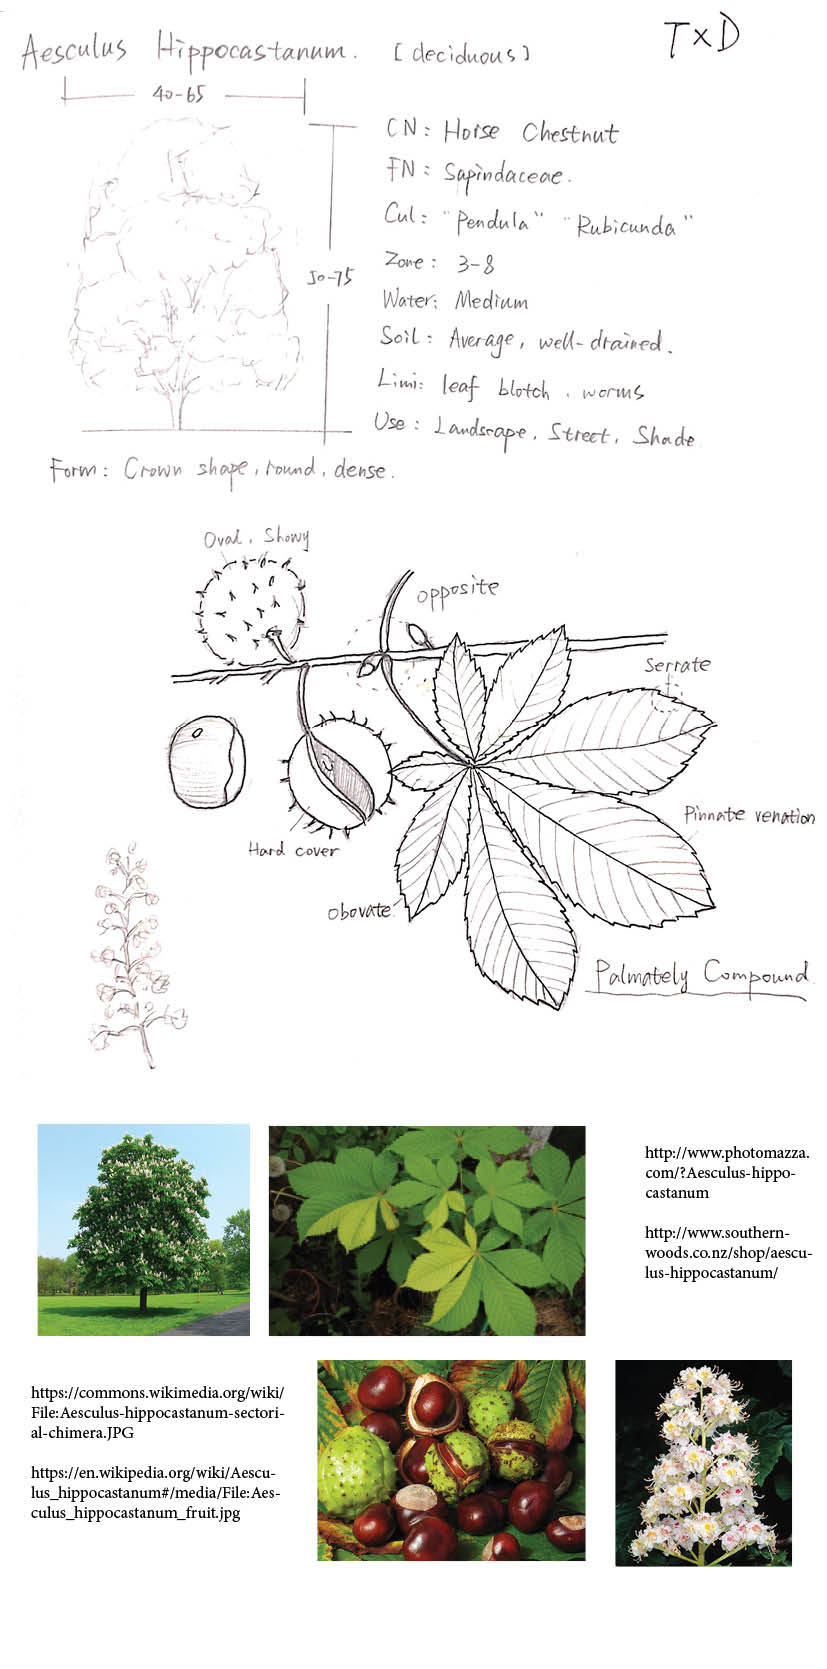 Aesculus Hippocastanum. [deciduous]
TXD
40-65
50-75
CN: Horse Chestnut
FN: Sapindaceae.
Cul: "Pendula" "Rubicunda"
Zone: 3-8
Water: Medium
Soil: Average, well-drained.
Limi: leaf blotch, worms
Use: Landscape, Street, Shade
Form: Crown shape, round, dense.
Oval, Showy
opposite
Serrate
Pinnate venation
Hard cover
obovate
Palmately Compound
http://www.photomazza.
com/?Aesculus-hippo-
castanum
http://www.southern-
woods.co.nz/shop/aescu-
lus-hippocastanum/
https://commons.wikimedia.org/wiki/
File:Aesculus-hippocastanum-sectori-
al-chimera.JPG
https://en.wikipedia.org/wiki/Aescu-
lus_hippocastanum#/media/File:Aes-
culus_hippocastanum_fruit.jpg